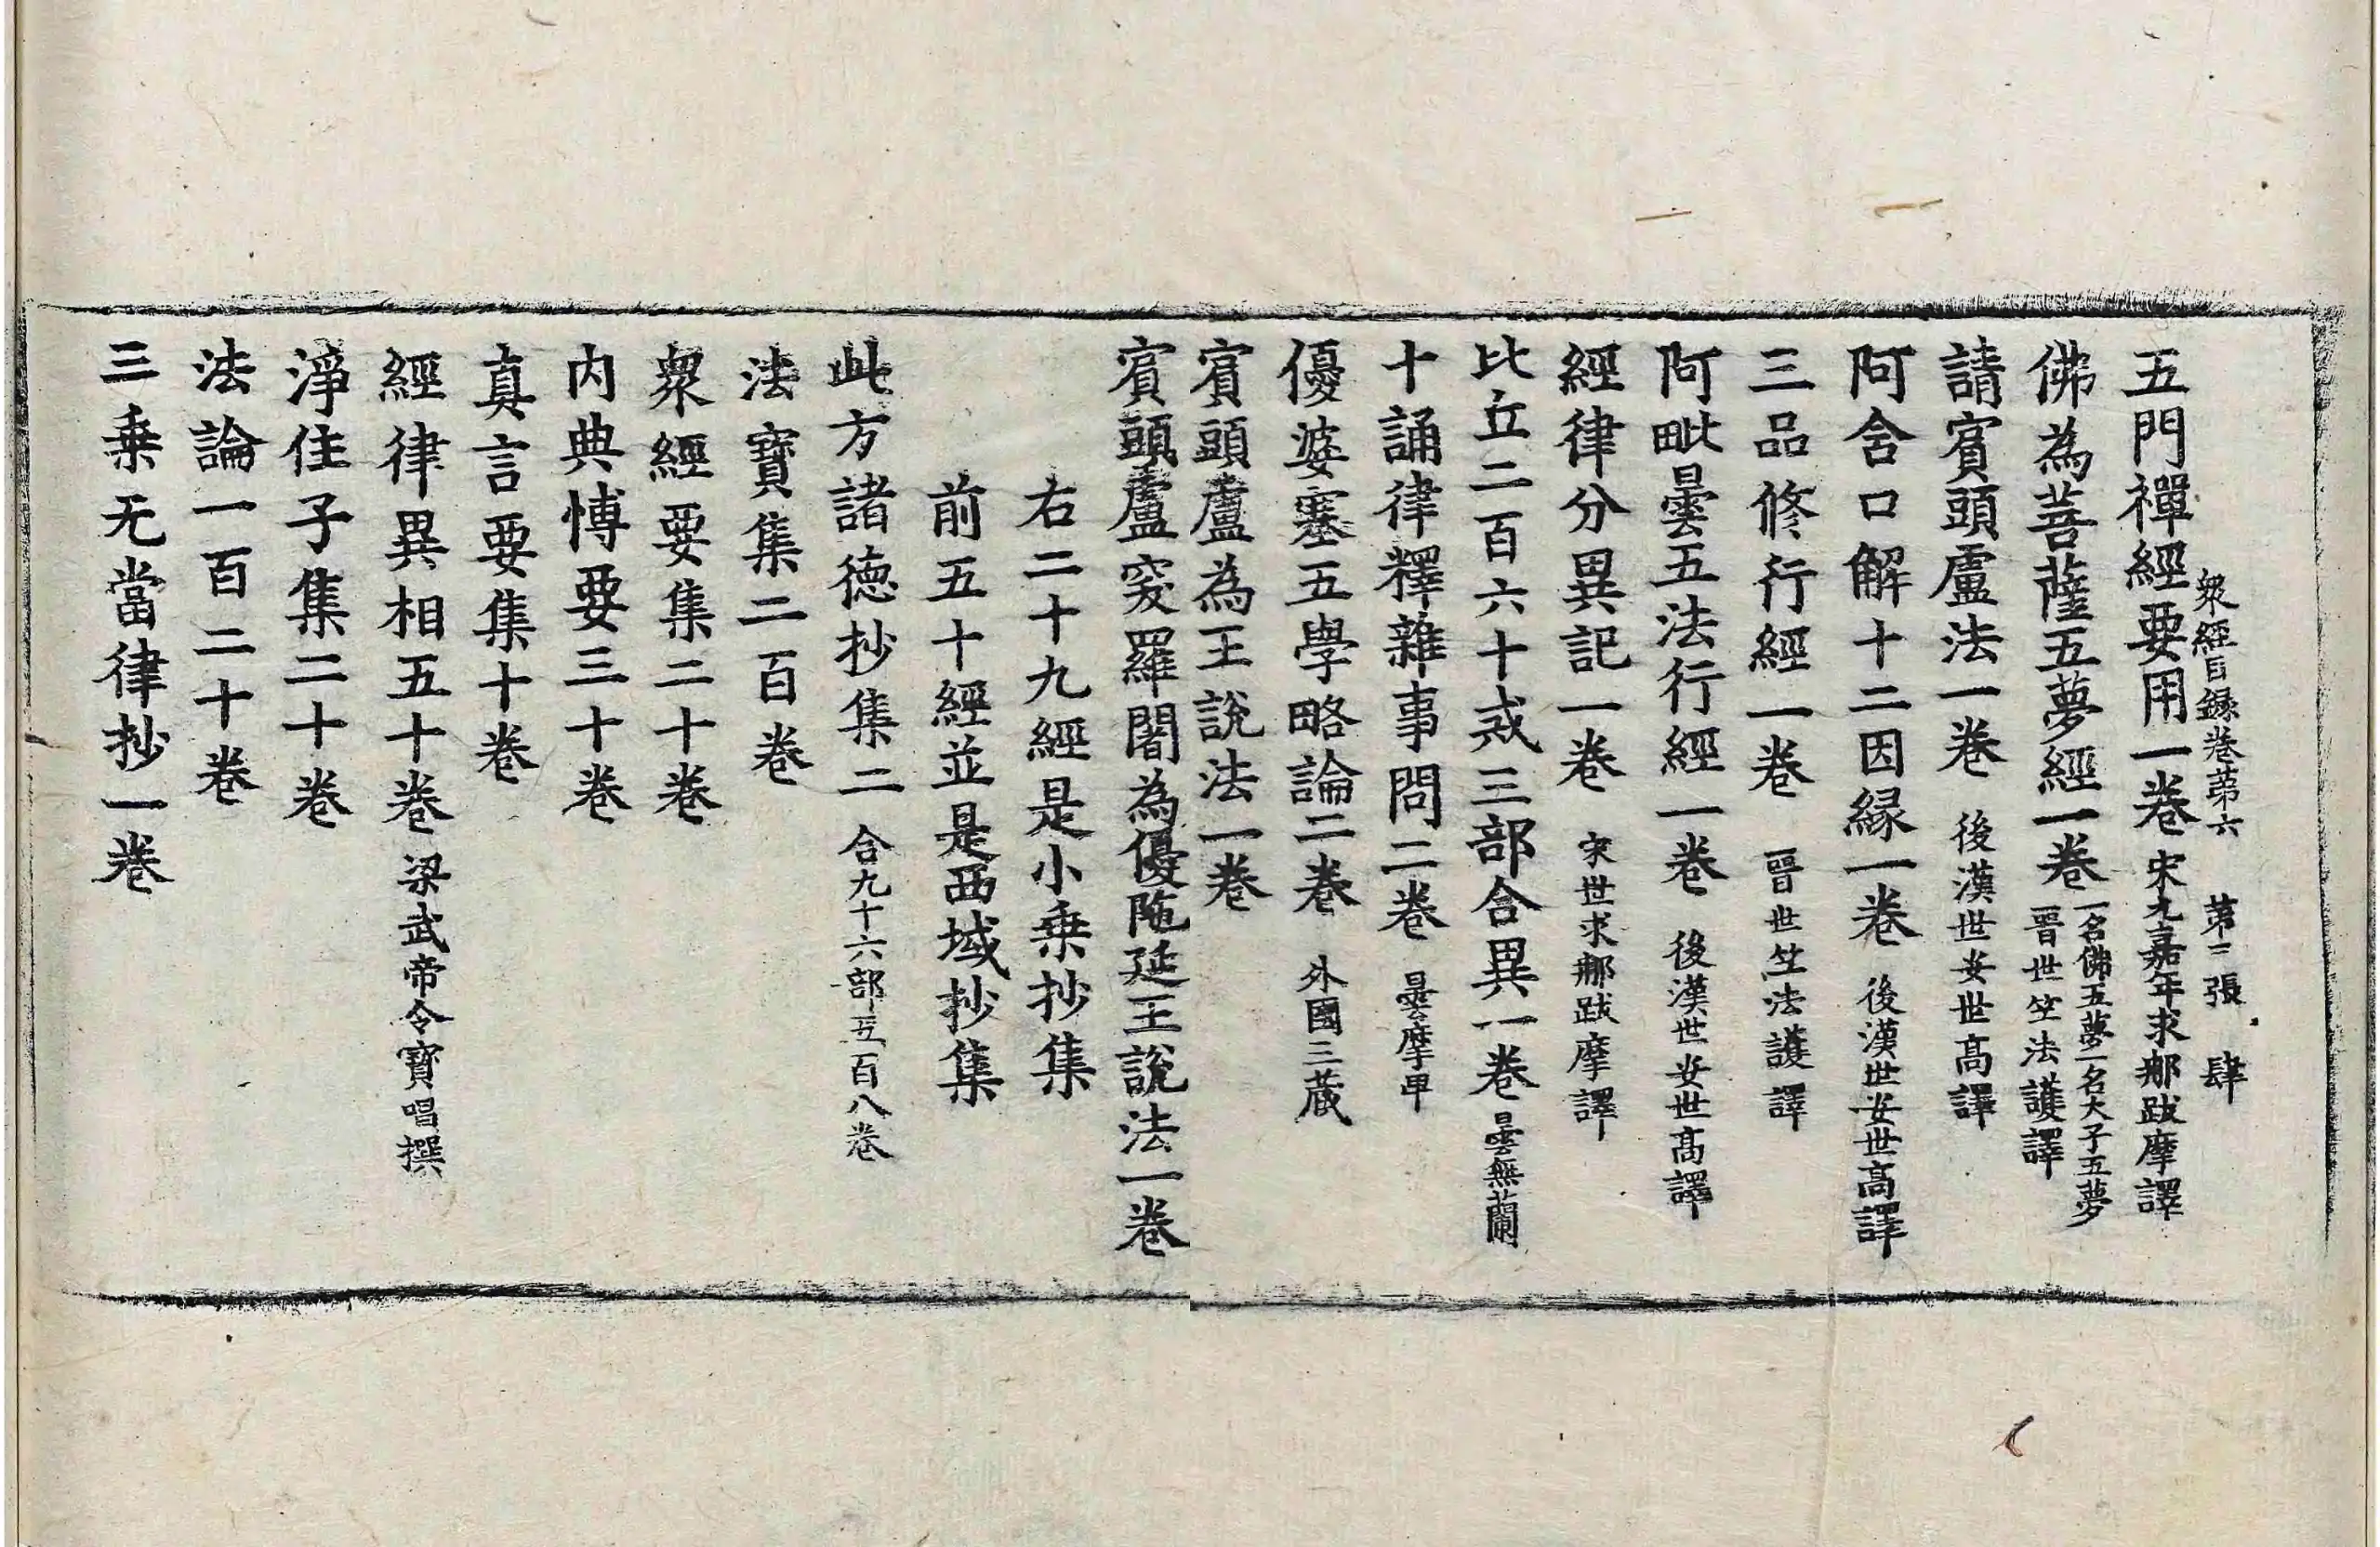 衆經目錄卷第六 第二張 肆
五門禪經要用一卷 宋元嘉年求那跋摩譯
佛為菩薩五夢經一卷 一名佛五夢一名大子五夢 晉世竺法護譯
請賔頭盧法一卷 後漢世安世高譯
阿含口解十二因縁一卷 後漢世安世高譯
三品修行經一卷 晉世竺法護譯
阿毗曇五法行經一卷 後漢世安世高譯
經律分異記一卷 宋世求那跋摩譯
比丘二百六十戒三部合異一卷 曇無蘭
十誦律釋雜事問二卷 曇摩卑
優婆塞五學略論二卷 外國三蔵
賔頭盧為王説法一卷
賔頭盧突羅闍為優陁延王説法一卷
右二十九經是小乗抄集
前五十經並是西域抄集
此方諸徳抄集二 合九十六部五百八卷
法寶集二百卷
衆經要集二十卷
内典博要三十卷
真言要集十卷
經律異相五十卷 梁武帝令寳唱撰
淨住子集二十卷
法論一百二十卷
三乗无當律抄一卷